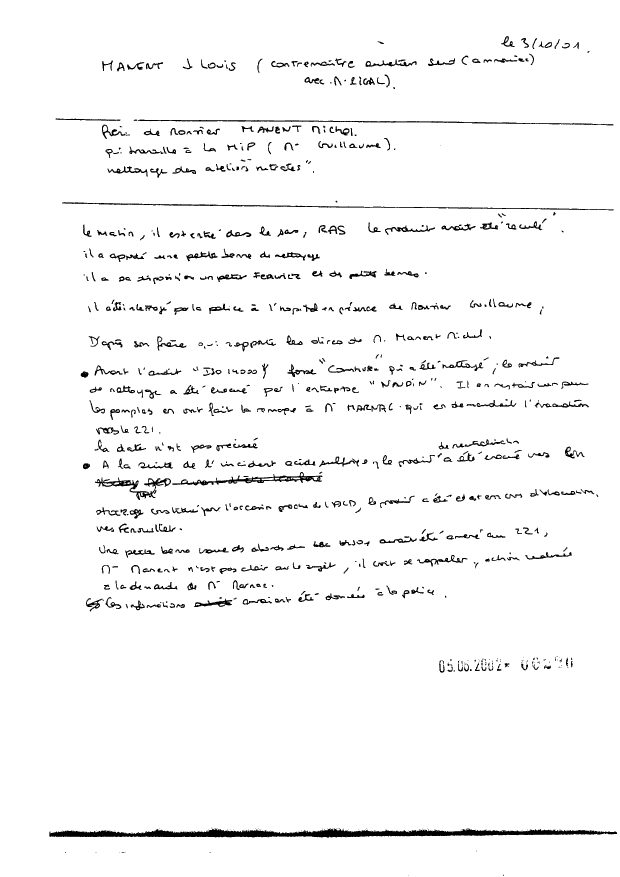 le 3/10/01.
MANENT J Louis (contremaître entretien secd (ammoniac)
avec M. LIGAL).
frère de Monsieur MANENT Michel.
qui travaille à la MIP ( Mr Guillaume).
nettoyage des ateliers nitrates".
le matin, il est entré dans le sas, RAS le produit avait été "reculé".
il a apporté une petite benne de nettoyage
il a à sa disposition un petit FENWICK et de petites bennes.
il a été interrogé par la police à l'hôpital en présence de Monsieur Guillaume,
D'après son frère qui rapporte les dires de M. Manent Michel.
• Avant l'audit "ISO 14000" fosse qui a été nettoyé, le produit
de nettoyage a été évacué par l'entreprise "NAUDIN". Il en restait un peu
les pompiers en ont fait la remarque à Mr MARNAC qui en demandait l'évacuation
vers le 221.
la date n'est pas précisée
• A la suite de l'incident acide sulfurique, le produit de neutralisation a été évacué vers
stockage constitué par l'occasion proche de l'ACD, le produit a été et est en cours d'évacuation,
vers Fenouillet.
Une petite benne des abords du aurait été amené au 221,
Mr Manent n'est pas clair sur le sujet, il croit se rappeler, action réalisée
à la demande de Mr Marnac.
Ces informations auraient été données à la police.
05.06.2002* 00290